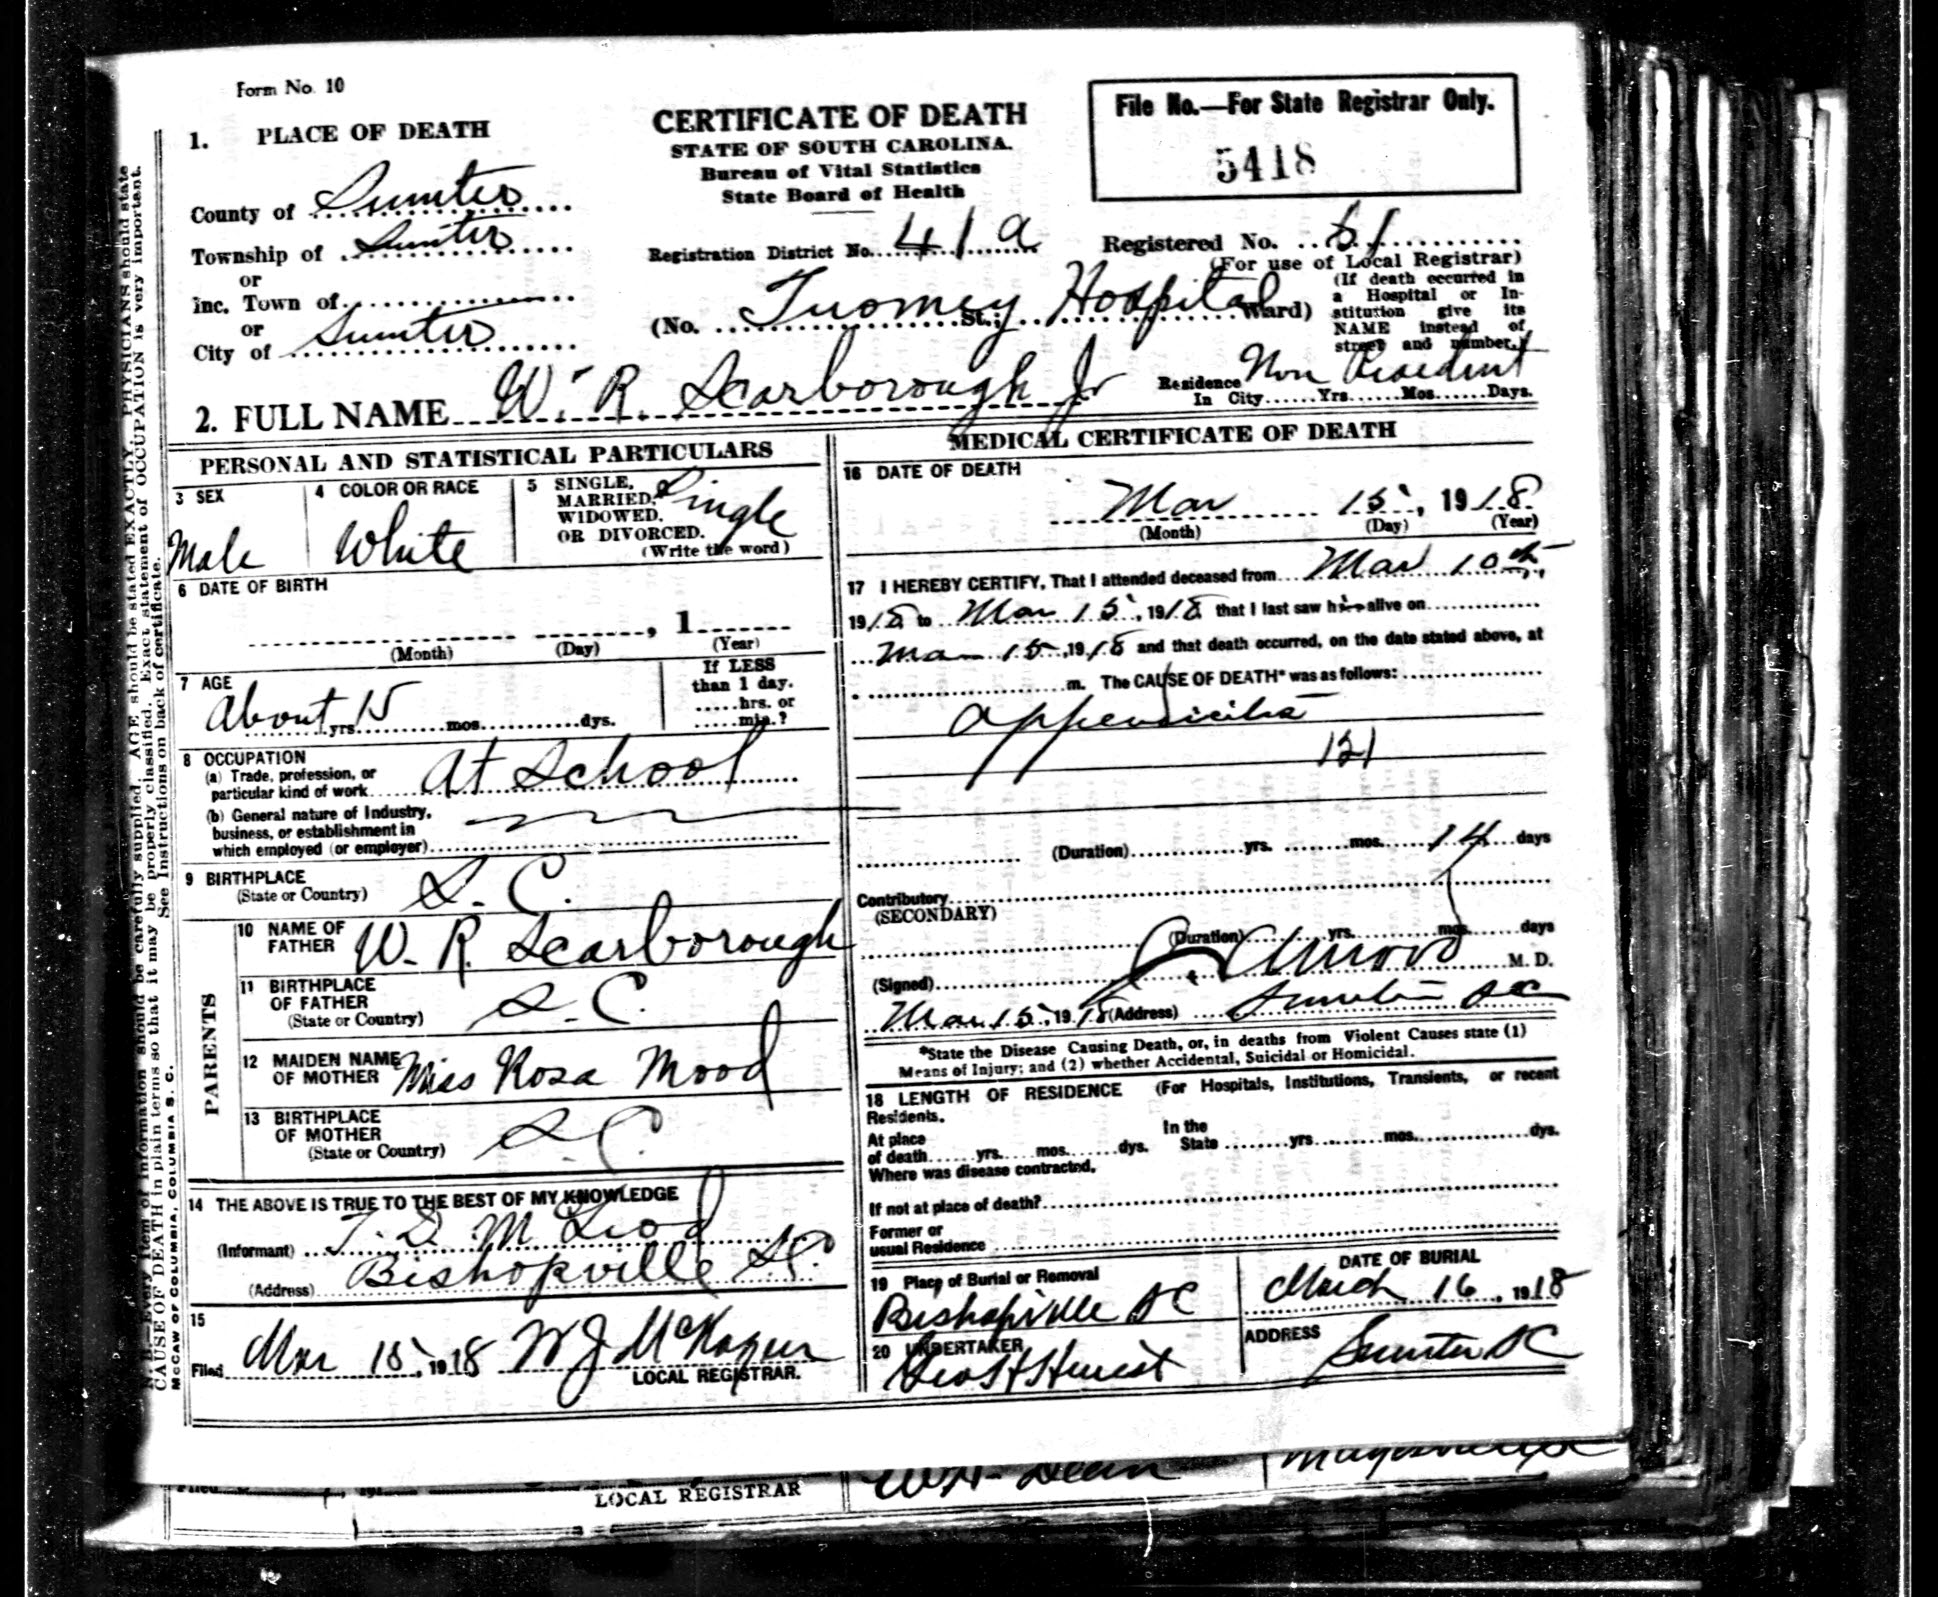 Form No. 10
CERTIFICATE OF DEATH
STATE OF SOUTH CAROLINA.
Bureau of Vital Statistics
State Board of Health
File No.—For State Registrar Only.
5418
1. PLACE OF DEATH
County of Sumter
Township of Sumter
or
Inc. Town of
or
City of Sumter
Registration District No. 41 a
Registered No.
(For use of Local Registrar)
(No. Tuomey Hospital St.; Ward)
(If death occurred in
a Hospital or In-
stitution give its
NAME instead of
street and number.)
2. FULL NAME W. R. Scarborough Jr
Residence Non Resident
In City Yrs Mos Days.
PERSONAL AND STATISTICAL PARTICULARS
3 SEX
Male
4 COLOR OR RACE
White
5 SINGLE,
MARRIED,
WIDOWED,
OR DIVORCED.
(Write the word)
Single
6 DATE OF BIRTH
, 1
(Month) (Day) (Year)
7 AGE
About yrs 15 mos dys.
If LESS
than 1 day.
hrs. or
min.?
8 OCCUPATION
(a) Trade, profession, or
particular kind of work At School
(b) General nature of Industry,
business, or establishment in
which employed (or employer)
9 BIRTHPLACE
(State or Country) S. C.
PARENTS
10 NAME OF
FATHER W. R. Scarborough
11 BIRTHPLACE
OF FATHER
(State or Country) S. C.
12 MAIDEN NAME
OF MOTHER Miss Rosa Mood
13 BIRTHPLACE
OF MOTHER
(State or Country) S. C.
14 THE ABOVE IS TRUE TO THE BEST OF MY KNOWLEDGE
(Informant) T. D. McLeod
(Address) Bishopville S.C.
15
Filed Mar 15, 1918 W J McKagen
LOCAL REGISTRAR.
MEDICAL CERTIFICATE OF DEATH
16 DATE OF DEATH
Mar 15, 1918
(Month) (Day) (Year)
17 I HEREBY CERTIFY, That I attended deceased from Mar 10th,
1918 to Mar 15, 1918 that I last saw him alive on
Mar 15, 1918 and that death occurred, on the date stated above, at
m. The CAUSE OF DEATH* was as follows:
Appendicitis
121
(Duration) yrs. mos. 14 days
Contributory
(SECONDARY)
(Duration) yrs. mos. days
(Signed) M. D.
Mar 15, 1918 (Address) Sumter SC
*State the Disease Causing Death, or, in deaths from Violent Causes state (1)
Means of Injury; and (2) whether Accidental, Suicidal or Homicidal.
18 LENGTH OF RESIDENCE (For Hospitals, Institutions, Transients, or recent
Residents.
At place
of death yrs. mos. dys.
In the
State yrs. mos. dys.
Where was disease contracted,
If not at place of death?
Former or
usual Residence
19 Place of Burial or Removal
Bishopville SC
DATE OF BURIAL
March 16, 1918
20 UNDERTAKER
Geo H Hurst
ADDRESS
Sumter SC
N. B.—Every item of information should be carefully supplied. AGE should be stated EXACTLY. PHYSICIANS should state
CAUSE OF DEATH in plain terms so that it may be properly classified. Exact statement of OCCUPATION is very important.
See Instructions on back of certificate.
McCAW OF COLUMBIA, COLUMBIA S. C.
LOCAL REGISTRAR